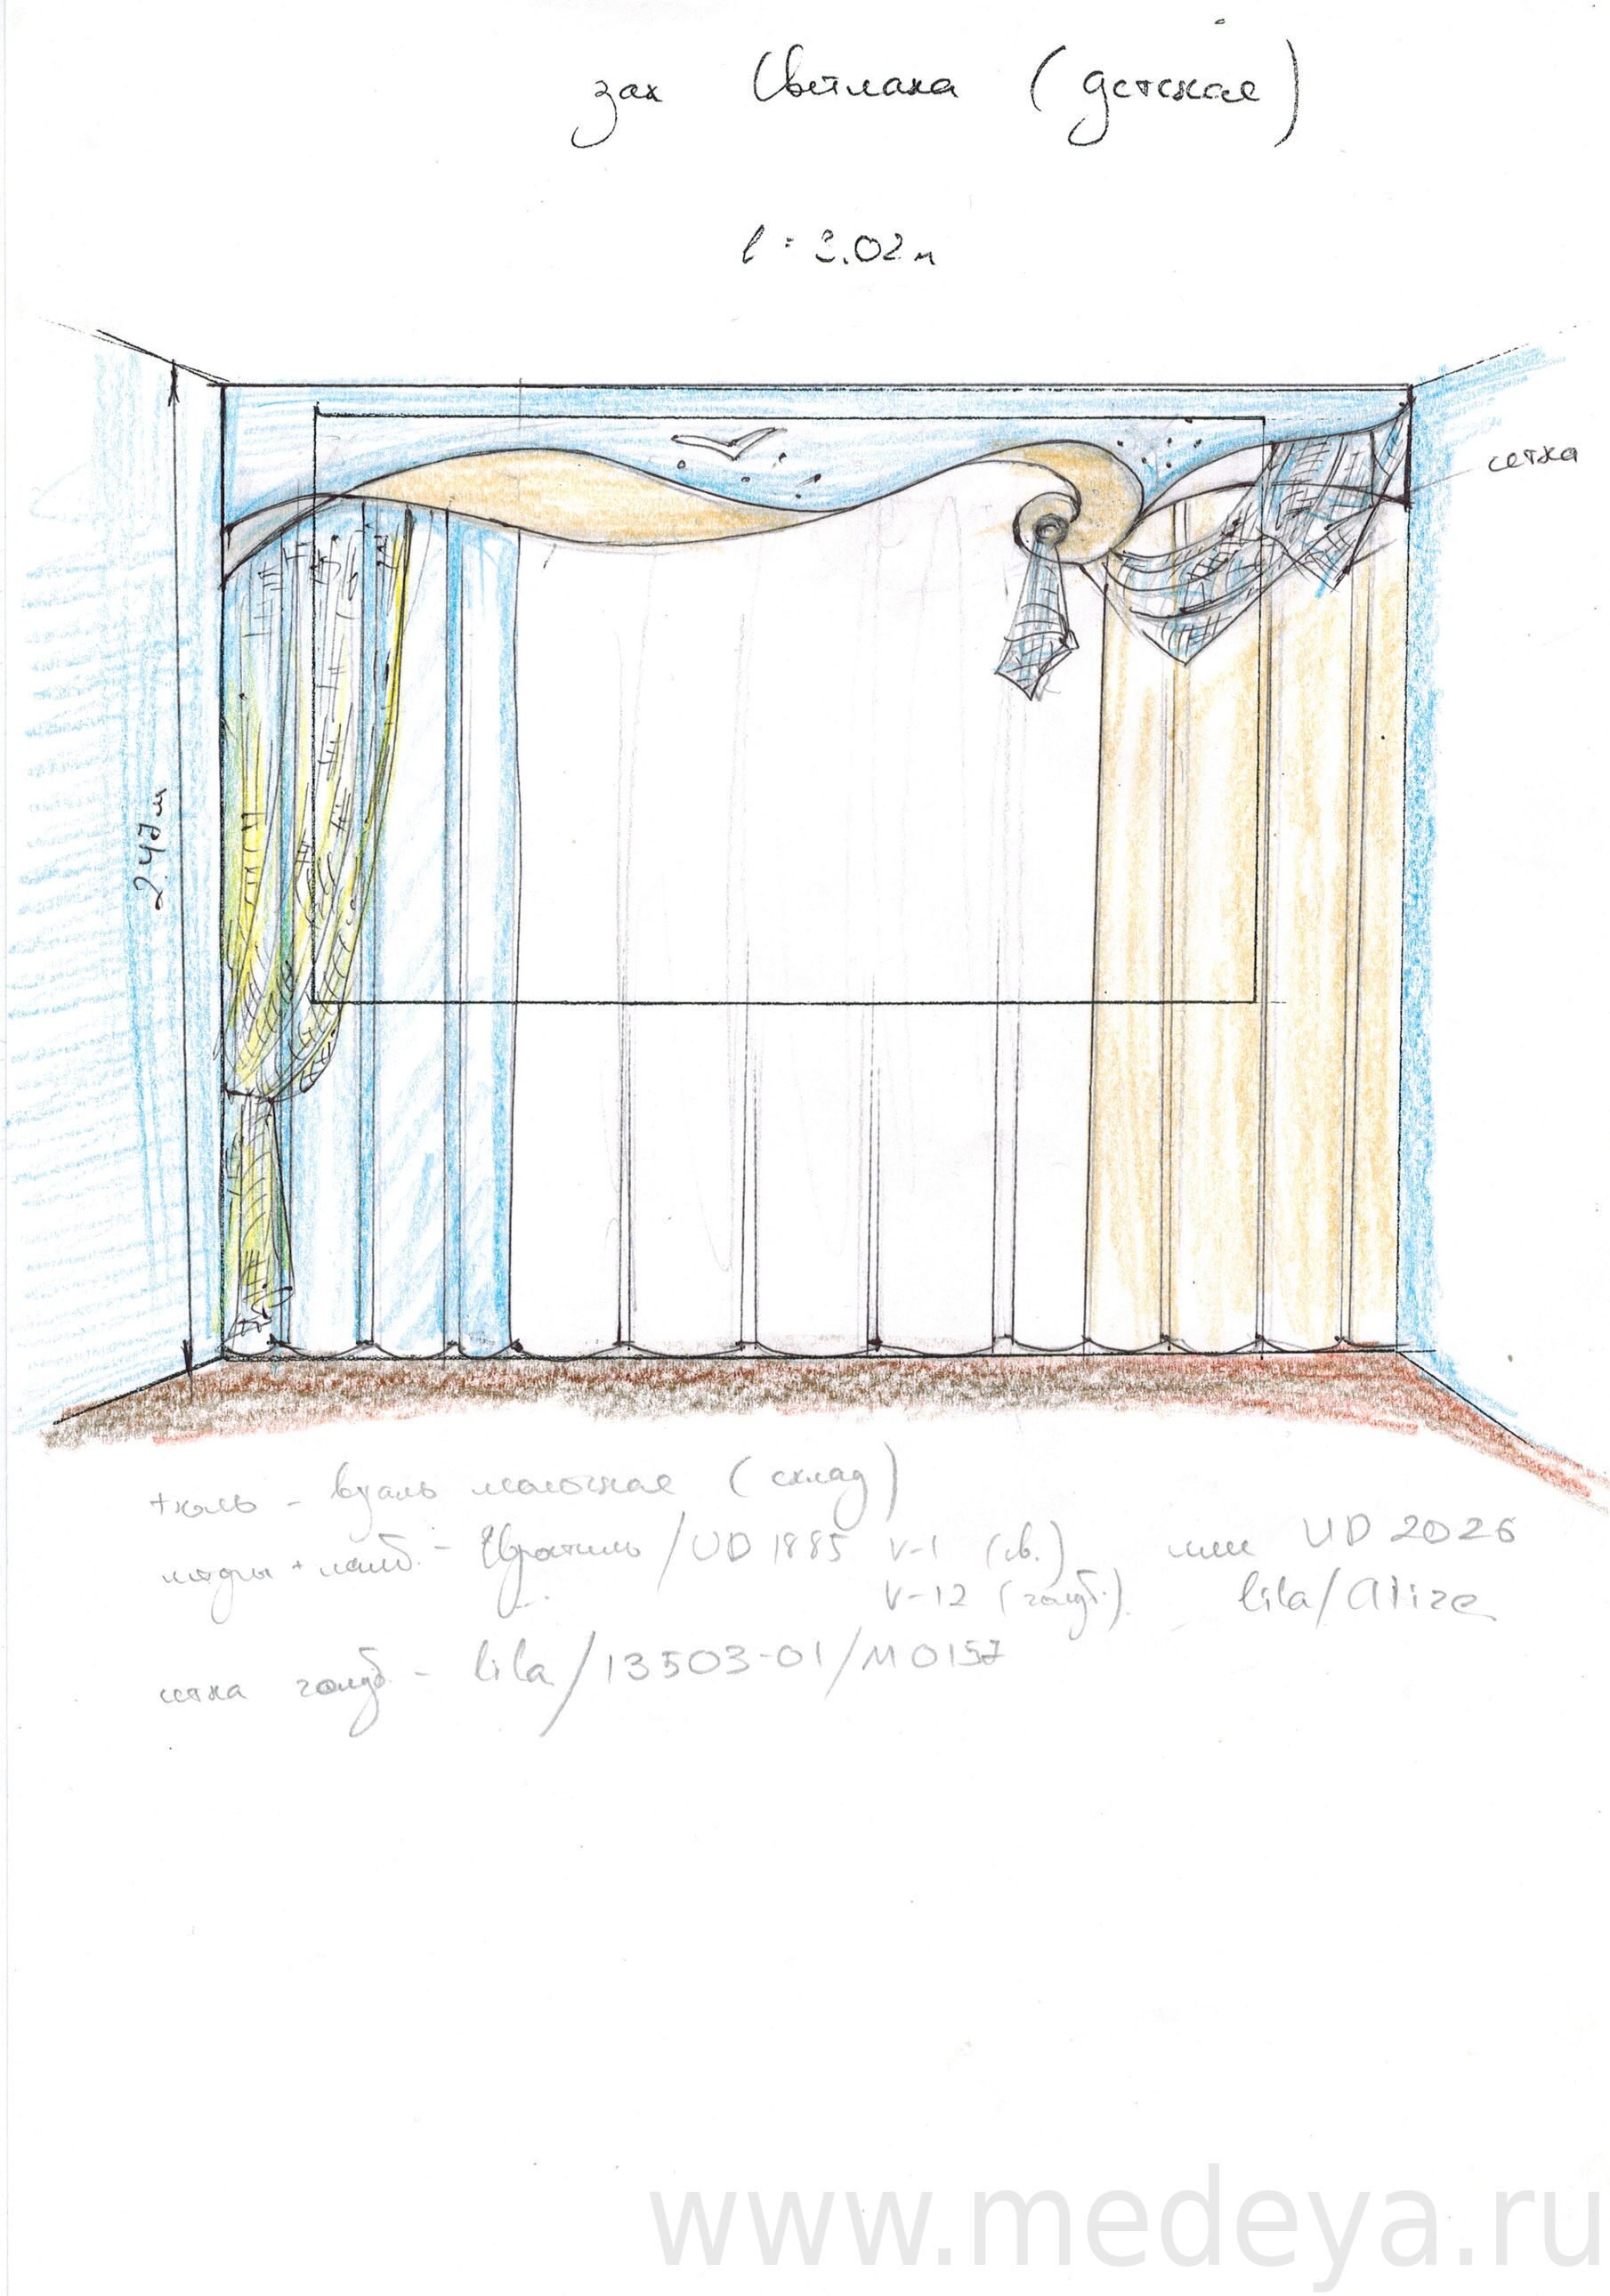 зак Светлана (детская)
l = 3.02 м
сетка
2.47 м
тюль - вуаль молочная (склад)
шторы + ламб. - Евростиль / UD 1885 V-1 (св.) или UD 2026
V-12 (голуб.) lila / Alize
сетка голуб - lila / 13503-01 / M0157
www.medeya.ru